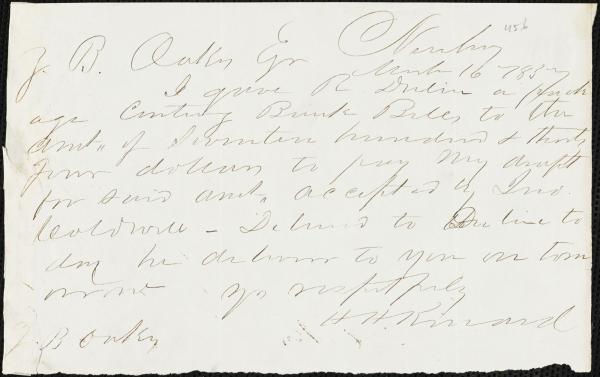 456
Z. B. Oakes Esr Newberry
March 16 1857
I gave R. Dulin a pack
age containg Bank Bills to the
Amt, of Seventeen hundred & thirty
four dollars to pay My draft
for said amt, accepted by Jno.
Coldwell – Delivered to Duline to
day he delivers to you on tom
orrow yrs respetfely
H H Kinard
Z B Oakes